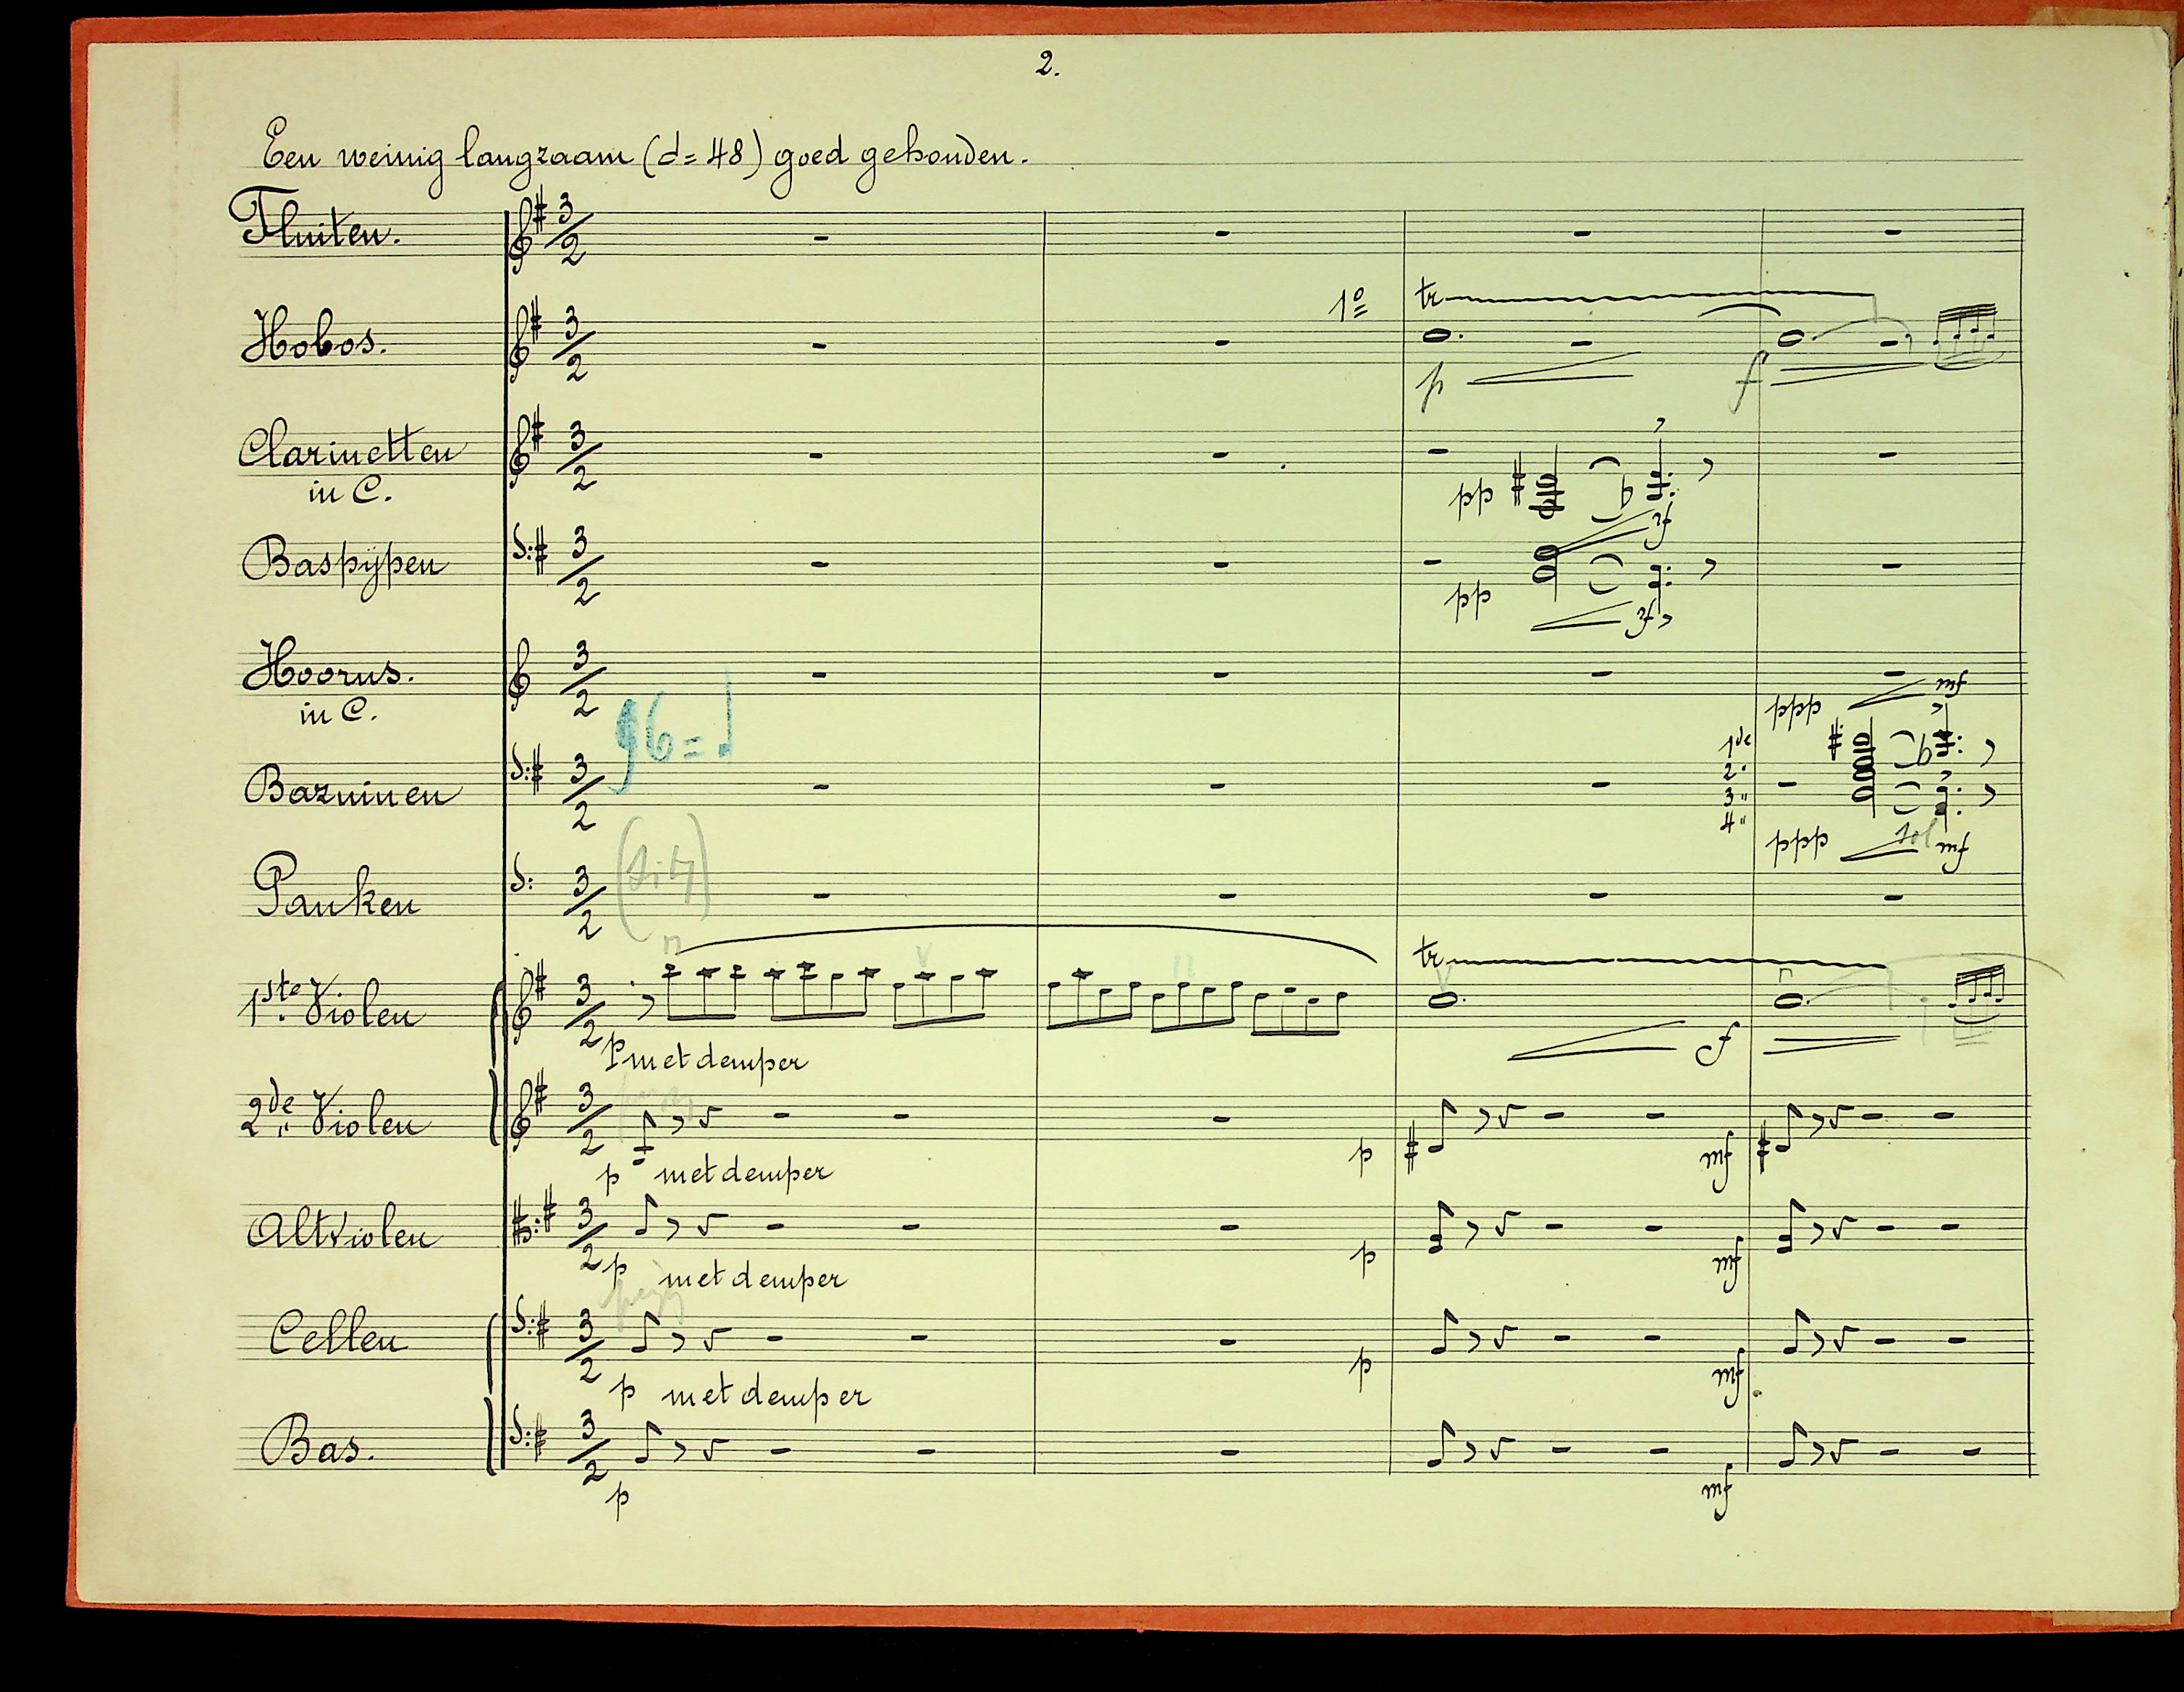 2.
Een weinig langzaam (𝅗𝅥 = 48) goed gehouden.
Fluiten.
3 2
1º
tr
Hobos.
3 2
p f
Clarinetten
in C.
3 2
pp rf
Baspÿpen
3 2
pp rf
Hoorns.
in C.
3 2
96 = ♩
ppp mf
Bazuinen
3 2
1de
2"
3"
4"
ppp mf
Pauken
3 2
tr
1ste Violen
3 2
p met demper
f
2de " Violen
3 2
p met demper
p mf
Altviolen
3 2
p met demper
p mf
Cellen
3 2
p met demper
p mf
Bas.
3 2
p mf